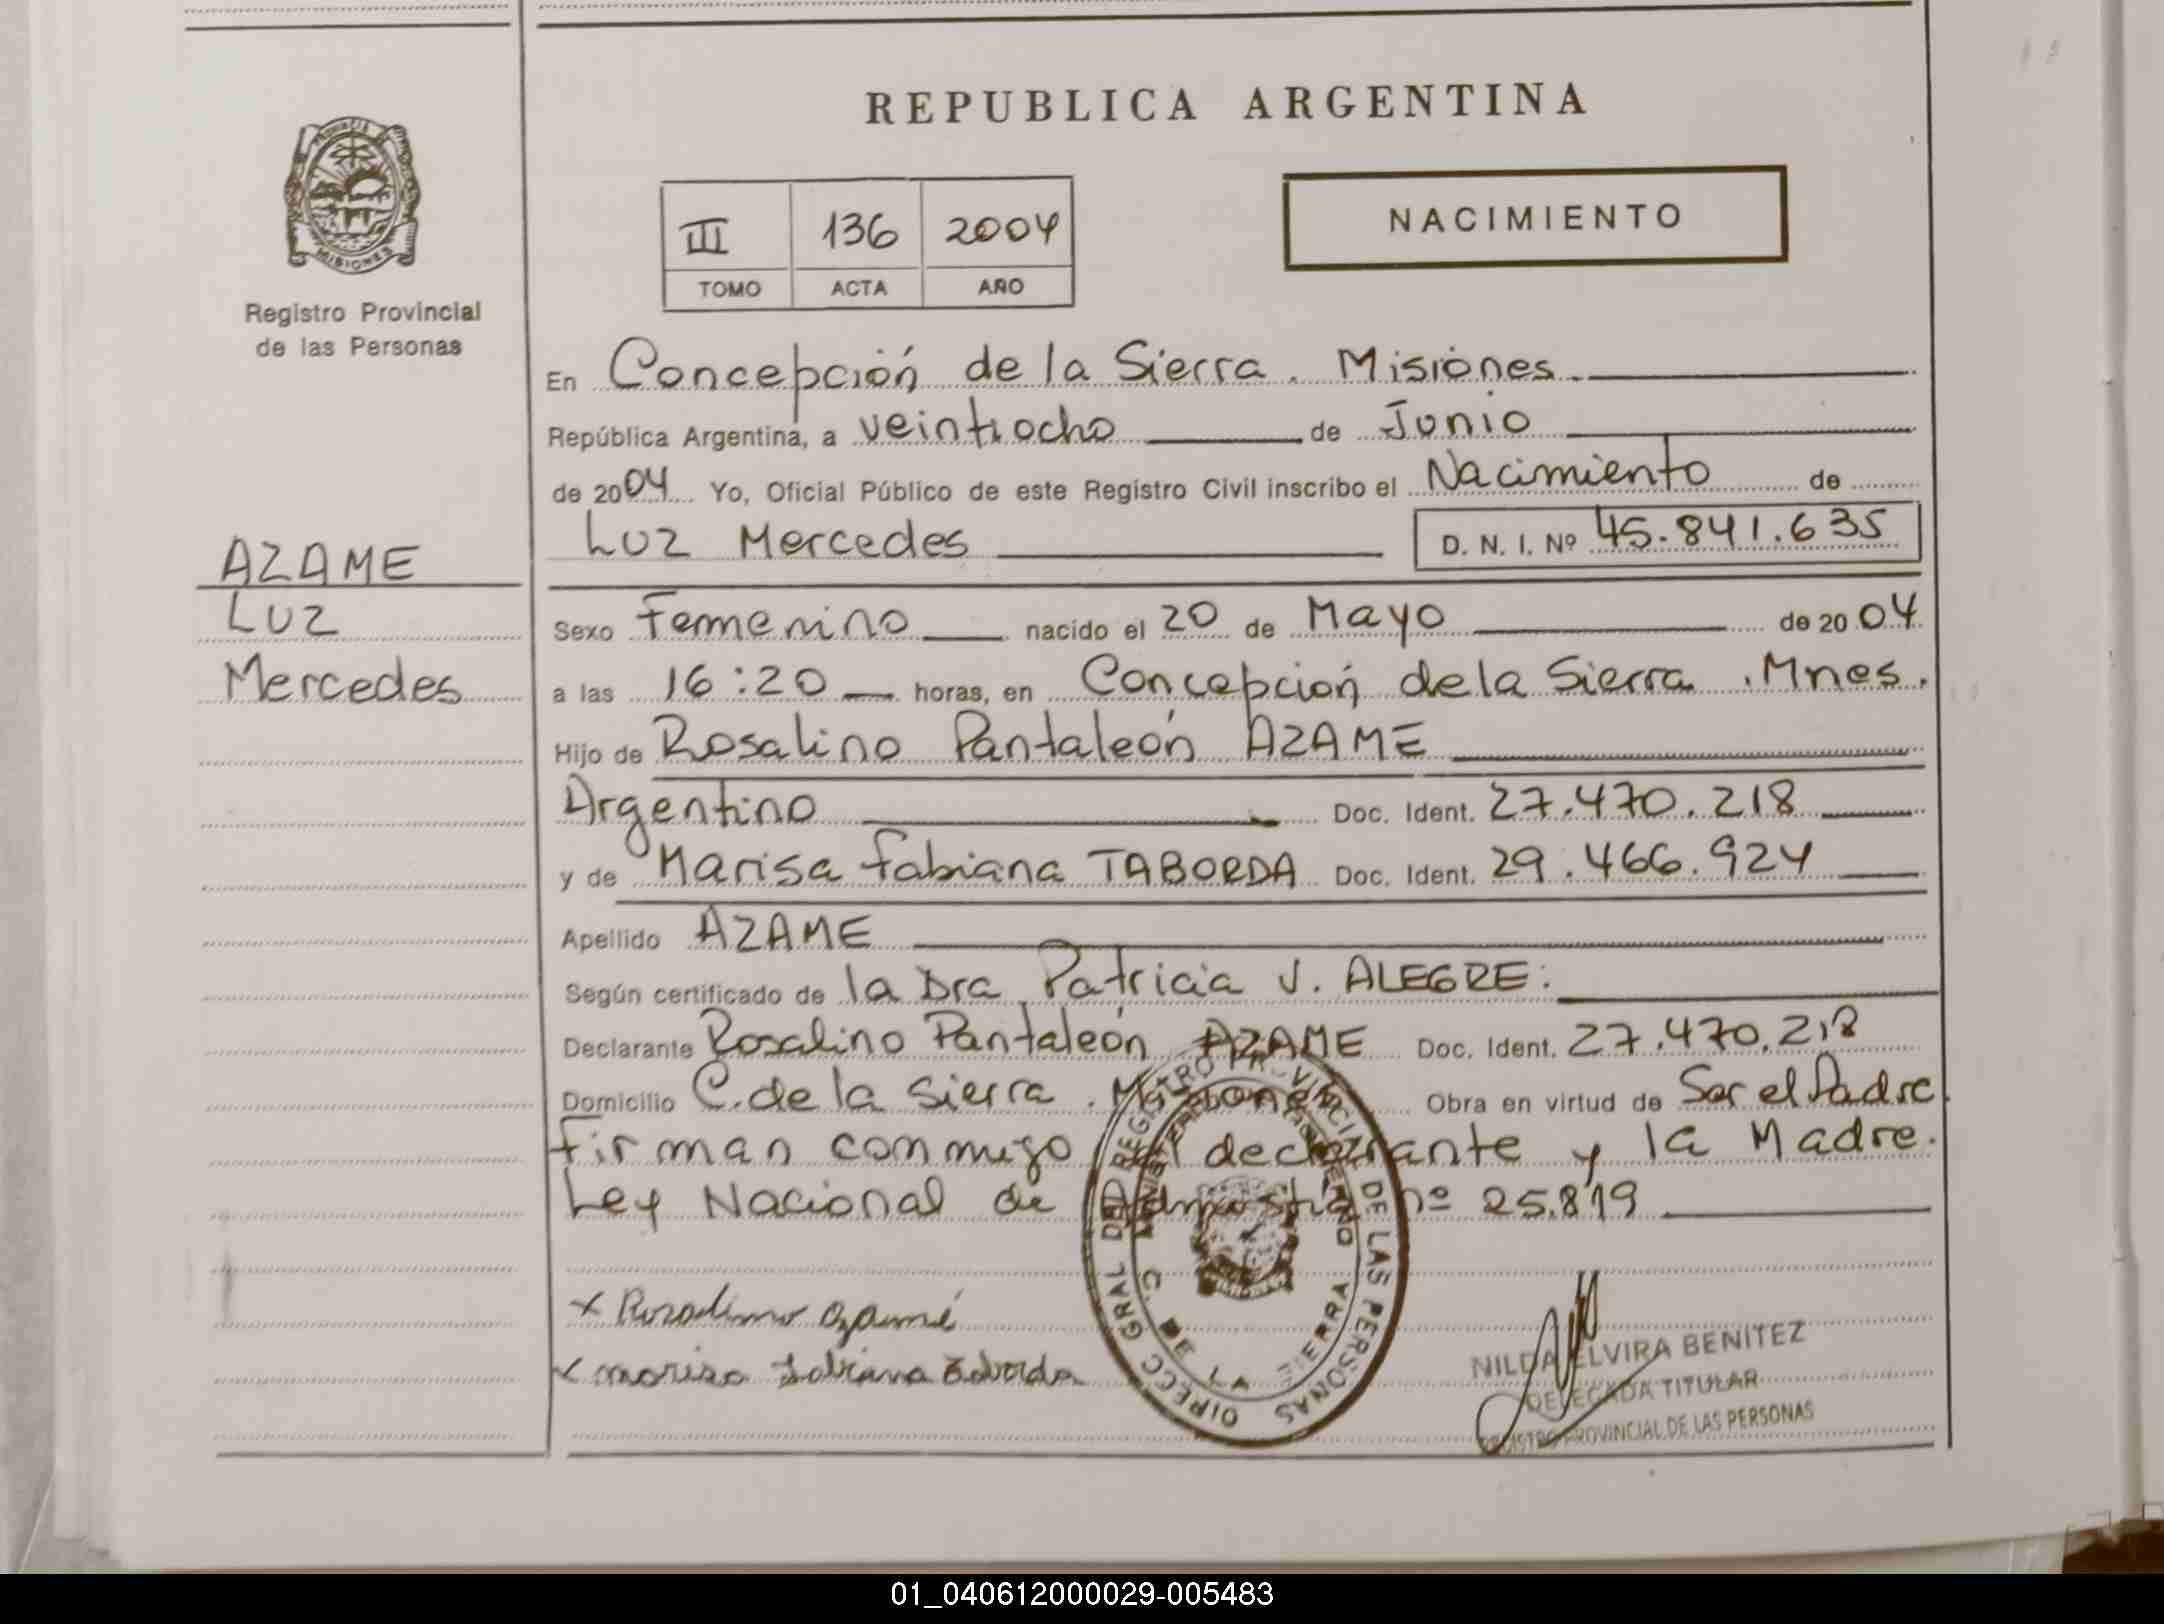 REPUBLICA ARGENTINA
PROVINCIA DE
MISIONES
Registro Provincial
de las Personas
III 136 2004
TOMO ACTA AÑO
NACIMIENTO
En Concepción de la Sierra. Misiones.
República Argentina, a veintiocho de Junio
de 2004 Yo, Oficial Público de este Registro Civil inscribo el Nacimiento de
Luz Mercedes D. N. I. Nº 45.841.635
AZAME
Luz
Mercedes
Sexo Femenino nacido el 20 de Mayo de 2004
a las 16:20 horas, en Concepción de la Sierra. Mnes.
Hijo de Rosalino Pantaleón AZAME
Argentino Doc. Ident. 27.470.218
y de Marisa Fabiana TABORDA Doc. Ident. 29.466.924
Apellido AZAME
Según certificado de la Dra Patricia V. ALEGRE.
Declarante Rosalino Pantaleón AZAME Doc. Ident. 27.470.218
Domicilio C. de la Sierra. Misiones Obra en virtud de Ser el Padre.
Firman conmigo el declarante y la Madre.
Ley Nacional de Admistía nº 25.819
x Rosalino Azamé
x Marisa Fabiana Taborda
DIRECC GRAL DEL REGISTRO PROVINCIAL DE LAS PERSONAS
C. DE LA SIERRA
NILDA ELVIRA BENITEZ
DELEGADA TITULAR
REGISTRO PROVINCIAL DE LAS PERSONAS
01_040612000029-005483